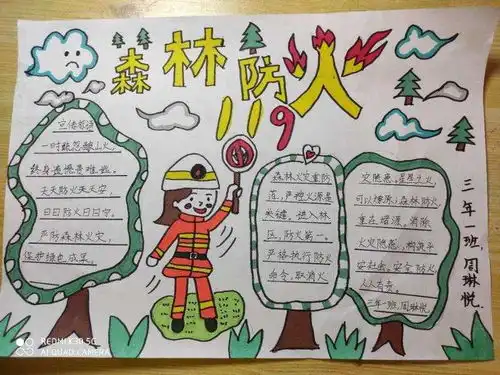 森林防火
119
宣传标语
一时疏忽酿山火,
终身遗憾毒难逃。
天天防火天天安
日日防火日日宁。
严防森林火灾,
保护绿色成果。
森林火灾重防
范,严控火源是
关键,进入林
区,防火第一。
严格执行防火
命令,取消火
灾隐患。星星之火,
可以燎原,森林防火
重在增源。消除
火灾隐患,构筑平
安社会。安全防火
人人有责。
三年一班 周琳悦
三年一班 周琳悦
REDMI K30 5G
AI QUAD CAMERA